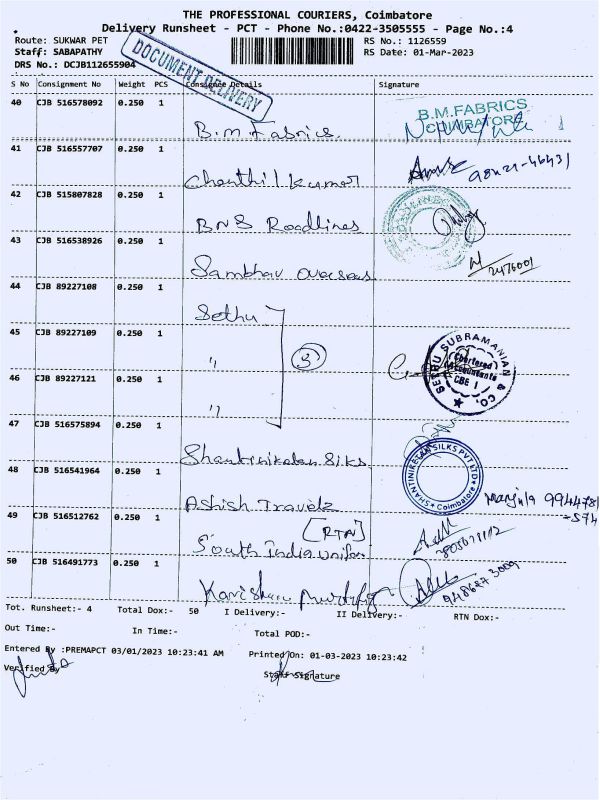 THE PROFESSIONAL COURIERS, Coimbatore
Delivery Runsheet - PCT - Phone No.:0422-3505555 - Page No.:4
Route: SUKWAR PET
RS No.: 1126559
Staff: SABAPATHY
RS Date: 01-Mar-2023
DRS No.: DCJB112655904
DOCUMENT DELIVERY
S No Consignment No Weight PCS Consignee Details Signature
40 CJB 516578092 0.250 1 B.M Fabrics
B.M.FABRICS
COIMBATORE
41 CJB 516557707 0.250 1 Chenthil kumar
42 CJB 515807828 0.250 1 BNS Roadlines
43 CJB 516538926 0.250 1 Sambhav overseas
2476001
44 CJB 89227108 0.250 1 Sethu
45 CJB 89227109 0.250 1 "
3
SETHU SUBRAMANIAN & CO.
Chartered
Accountants
CBE 1
46 CJB 89227121 0.250 1 "
47 CJB 516575894 0.250 1 Shantiniketan Silks
SHANTINIKETAN SILKS PVT LTD
Coimbatore
48 CJB 516541964 0.250 1 Ashish Travelz
Manjula 994478
-574
49 CJB 516512762 0.250 1 [RTN]
South India
50 CJB 516491773 0.250 1
Tot. Runsheet:- 4 Total Dox:- 50 I Delivery:- II Delivery:- RTN Dox:-
Out Time:- In Time:- Total POD:-
Entered By :PREMAPCT 03/01/2023 10:23:41 AM Printed On: 01-03-2023 10:23:42
Verified By
Staff Signature